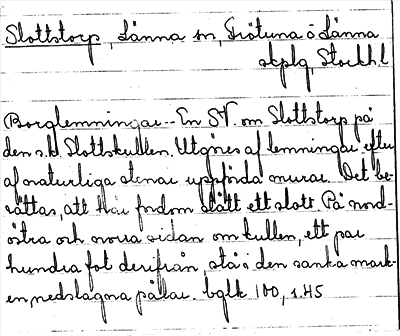 Slottstorp, Länna sn, Frötuna o Länna
skplg, Stockh. l
Borglemningar.-- En SV. om Slottstorp på
den s.k. Slottskullen. Utgöres af lemningar efter
af onaturliga stenar uppförda murar. Det be-
rättas, att här fordom stått ett slott. På nord-
östra och norra sidan om kullen, ett par
hundra fot derifrån, stå i den sanka mark-
en nedslagna pålar. bglk 100, s. 45